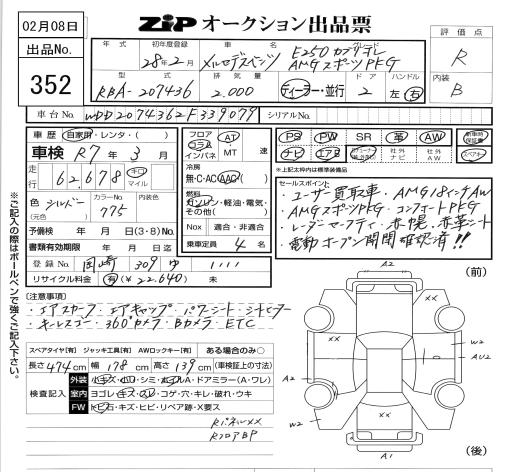 02月08日
ZIP オークション出品票
出品No.
352
年式
初年度登録
車名
グレード
28年2月
メルセデスベンツ
E250 カブリオレ
AMGスポーツPKG
型式
排気量
ドア
ハンドル
RBA-207436
2.000
ディーラー・並行
2
左・右
評価点
R
内装
B
車台No.
WDD2074362F339079
シリアルNo.
車歴
自家用・レンタ・( )
車検
R7年3月
走行
62,678
キロ
マイル
色
(元色)
シルバー
カラーNo.
775
内装色
予備検 年 月 日(3・8)No.
書類有効期限 年 月 日迄
登録No.
岡崎 309 ゆ ・・・・
リサイクル料金 有(¥22,640) 未
フロア
コラム
インパネ
AT
MT
速
冷房
無・C・AC・AAC
燃料
ガソリン・軽油・電気・
その他( )
Nox 適合・非適合
乗車定員 4 名
PS
PW
SR
革
AW
新車時
保証書
ナビ
エアB
社外
ナビ
社外
AW
スペアキー
※上記太枠内は標準装備品
セールスポイント
・ユーザー買取車・AMG18インチAW
・AMGスポーツPKG・コンフォートPKG
・レーダーセーフティ・赤幌・赤革シート
・電動オープン開閉確認済!!
(注意事項)
・エアスカーフ・エアキャップ・パワーシート・シートヒーター
・キーレスゴー・360°カメラ・Bカメラ・ETC
スペアタイヤ[有] ジャッキ工具[有] AWロックキー[有] ある場合のみ〇
長さ 474cm 幅 178cm 高さ 139cm (車検証上の寸法)
検査記入
外装
小キズ・小凹・シミ・
A・ドアミラー(A・ワレ)
室内
ヨゴレ・キズ・スレ・コゲ・穴・キレ・破れ・ウキ
FW
トビ石・キズ・ヒビ・リペア跡・X要ス
RパネルXX
RフロアBP
※ご記入の際はボールペンで強くご記入下さい。
(前)
A2
XX
W2
AU2
A2
XX
XX
W2
A1
(後)